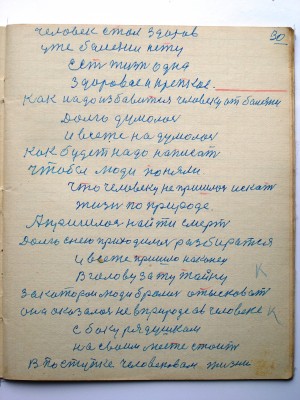 30
Человек стал здоров
уже болезни нету
Есть жизнь одна
здоровая и крепкое.
Как надо избавится человеку от болезни
Долго думалося
и всеже надумолося
Как будет надо написать
чтобы люди поняли
что человеку не пришлося искат
жизн по природе.
А пришлося найти смерт
Долго снею приходилося разбиратся
и всеже пришло наконец
В голову за ту тайну
За котором люди бролися отисковат
она оказалося не в природе а в человеке
с боку рядушком
на своим месте стоит
В поступке человековай жизни